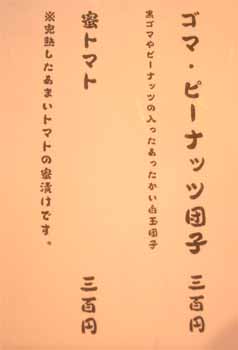 ゴマ・ピーナッツ団子 三百円
黒ゴマやピーナッツの入ったあったかい白玉団子
蜜トマト 三百円
※完熟したあまいトマトの蜜漬けです。